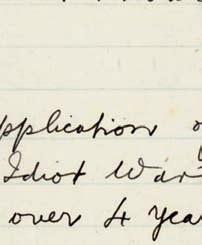 pplication o
Idiot War
over 4 yea